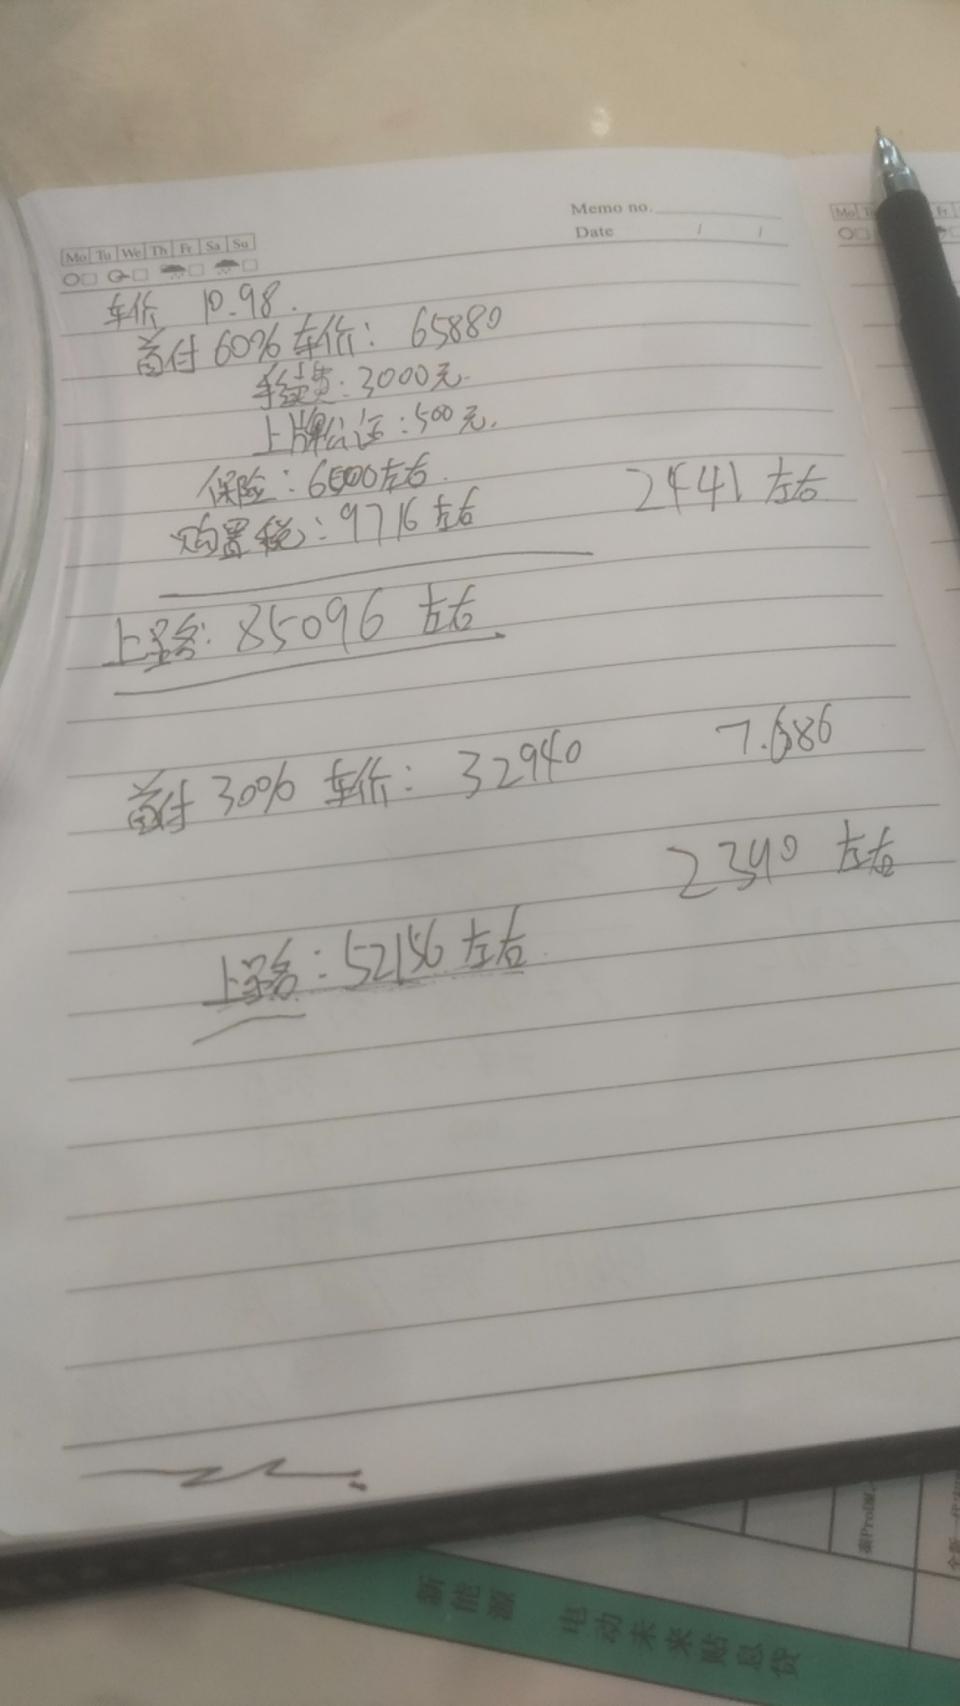 Memo no.
Date / /
Mo Tu We Th Fr Sa Su
车价 10.98.
首付60%车价：65880
手续费：3000元.
上牌公证：500元.
保险：6500左右.
2441左右
购置税：9716左右
上路：85096左右
7.686
首付30%车价：32940
2340左右
上路：52156左右.
新能源 电动未来贴息贷